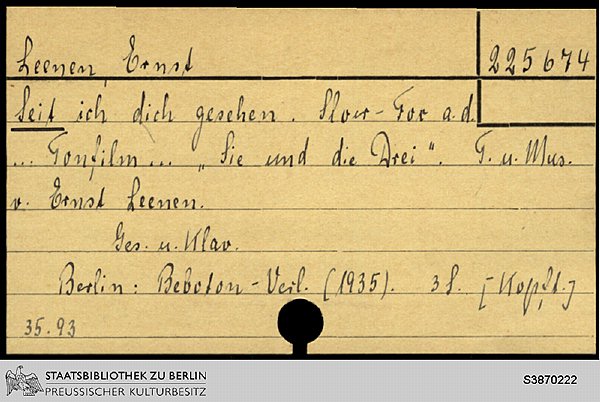 Leenen, Ernst 225674
Seit ich dich gesehen. Slow-Fox a.d.
... Tonfilm ... "Sie und die Drei". T. u. Mus.
v. Ernst Leenen.
Ges. u. Klav.
Berlin: Beboton-Verl. (1935). 3 S. [Kopft.]
35.93
STAATSBIBLIOTHEK ZU BERLIN
PREUSSISCHER KULTURBESITZ
S3870222